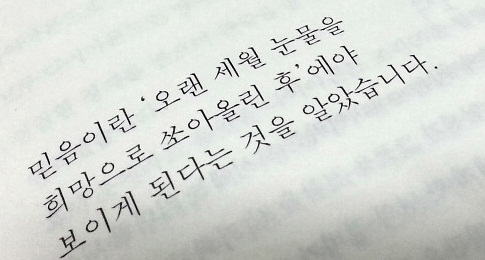 믿음이란 ‘오랜 세월 눈물을
희망으로 쏘아올린 후’에야
보이게 된다는 것을 알았습니다.